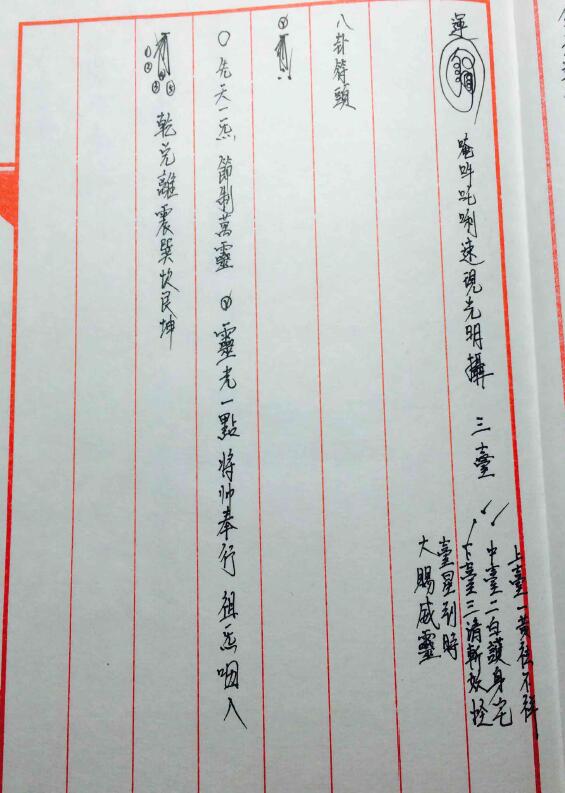 運
唵吽吒唎速現光明攝 三臺
上臺一黃祛不祥
中臺二白護身宅
下臺三清斬妖怪
臺星到時
大賜威靈
八卦符頭
〇 先天一炁 節制萬靈 靈光一點 將帅奉行 祖炁咽入
乾兌離震巽坎艮坤